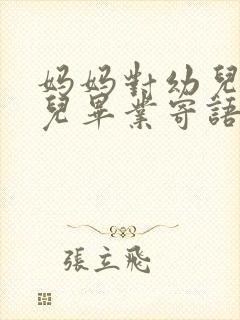 妈妈對幼兒
兒畢業寄語
張立飛